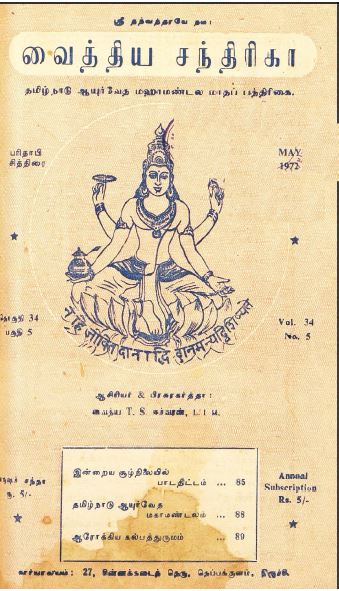 ஸ்ரீ தந்வந்தரயே நம:
வைத்திய சந்திரிகா
தமிழ்நாடு ஆயுர்வேத மஹாமண்டல மாதப் பத்திரிகை.
பரிதாபி
சித்திரை
MAY
1972
தொகுதி 34
பகுதி 5
Vol. 34
No. 5
न हि जीवितदानाद्धि दानमन्यद्विशिष्यते
ஆசிரியர் & பிரசுரகர்த்தா:
வைத்ய T. S. ஈச்வரன், L I M.
சந்தா
ரூ. 5/-
Annual
Subscription
Rs. 5/-
இன்றைய சூழ்நிலையில்
பாடதிட்டம் ... 85
தமிழ்நாடு ஆயுர்வேத
மகாமண்டலம் ... 88
ஆரோக்கிய கல்பத்துருமம் ... 89
காரியாலயம்: 27, சின்னக்கடைத் தெரு, தெப்பக்குளம், திருச்சி.